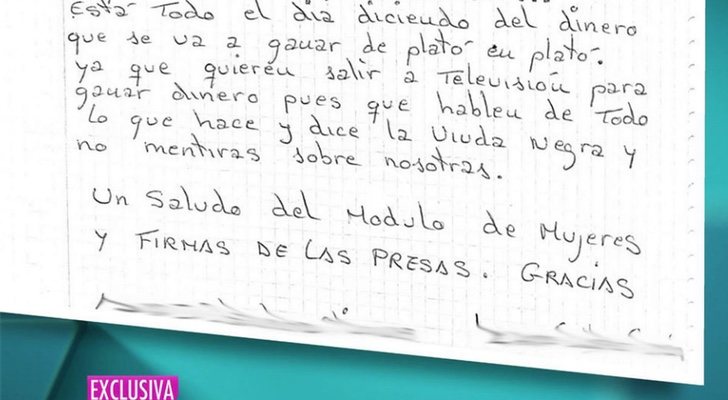 Está Todo el día diciendo del dinero
que se va a ganar de plató en plató.
ya que quieren salir a Televisión para
ganar dinero pues que hablen de Todo
Lo que hace y dice la Viuda Negra y
no mentiras sobre nosotras.
Un Saludo del Modulo de Mujeres
y FIRMAS DE LAS PRESAS. GRACIAS
EXCLUSIVA